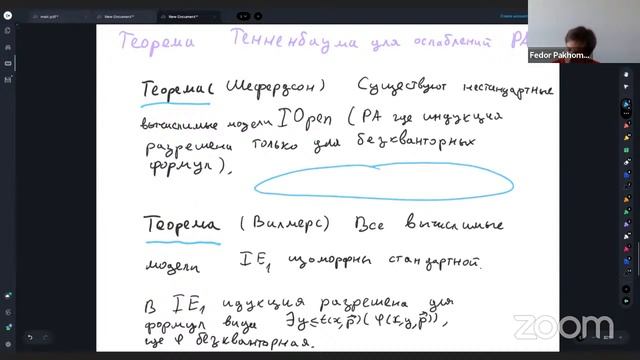 main.pdf*
New Document*
New Document*
Теорема Тенненбаума для ослаблений PA
Fedor Pakhom...
Теорема (Шефердсон) Существуют нестандартные
вычислимые модели IOpen (PA где индукция
разрешена только для безкванторных
формул).
Теорема (Вилмерс) Все вычислимые
модели IE₁ изоморфны стандартной.
В IE₁ идукция разрешена для
формул вида ∃y≤t(x,p⃗)(φ(x,y,p⃗)),
где φ безкванторная.
zoom